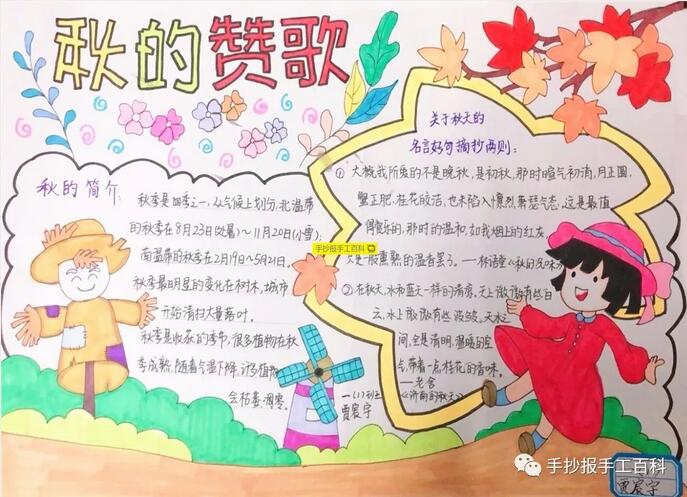 秋的赞歌
秋的简介:
秋季是四季之一,从气候上划分,北温带
的秋季在8月23日(处暑)～11月20日(小雪),
南温带的秋季在2月19日～5月21日,
秋季最明显的变化在树木,城市
开始清扫大量落叶。
秋季是收获的季节,很多植物在秋
季成熟,随着气温下降,许多植物
会枯萎、凋零。
一(1)班
贾宸宇
关于秋天的
名言好句摘抄两则:
① 大概我所爱的不是晚秋,是初秋,那时暄气初消,月正圆,
蟹正肥,桂花皎洁,也未陷入凛烈萧瑟气态,这是最值
得赏乐的,那时的温和,如我烟上的红灰,
只是一股熏熟的温香罢了。——林语堂《秋的风味》
② 在秋天,水和蓝天一样的清凉。天上微微有些白
云,水上微微有些波皱。天水之
间,全是清明,温暖的空
气,带着一点桂花的香味。
——老舍
《济南的秋天》
手抄报手工百科
手抄报手工百科
贾宸宇